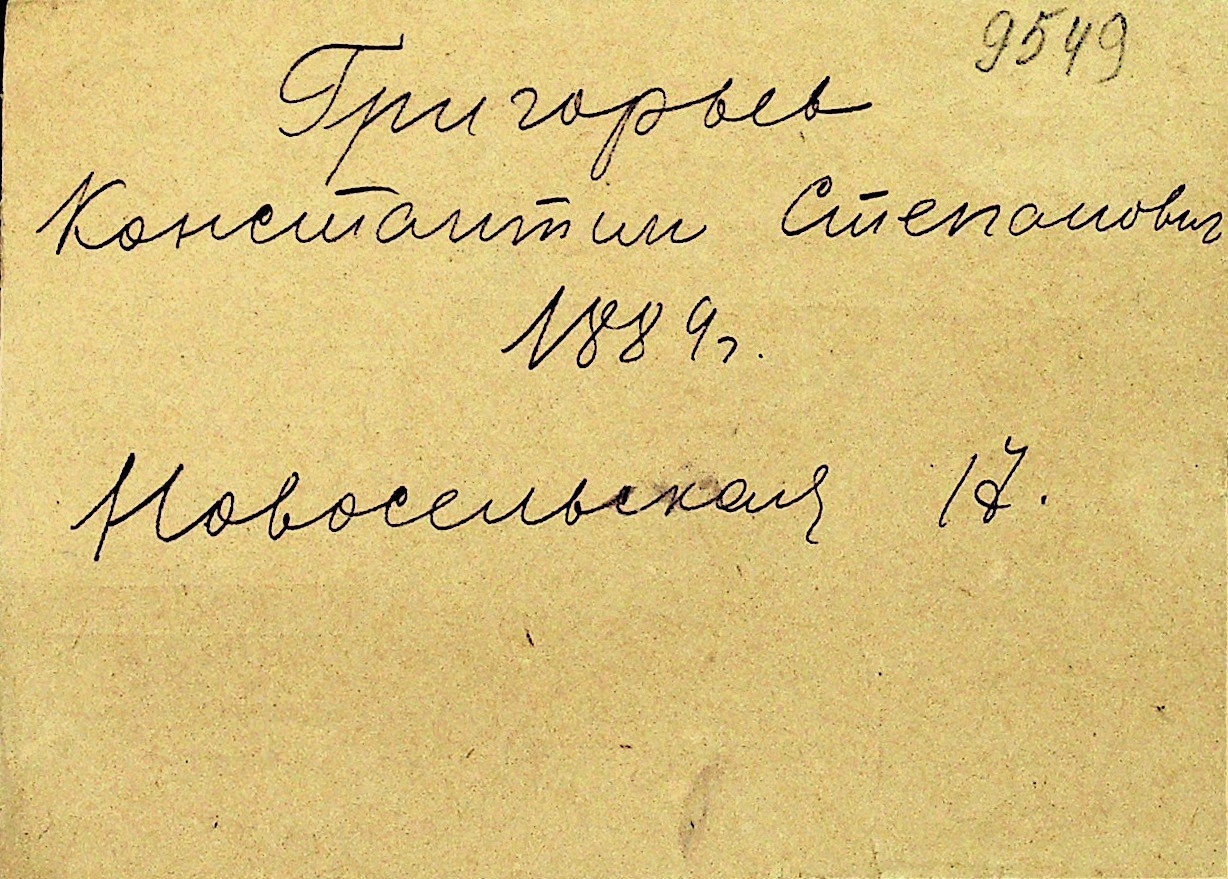 9549
Григорьев
Константин Степанович
1889г.
Новосельская 17.